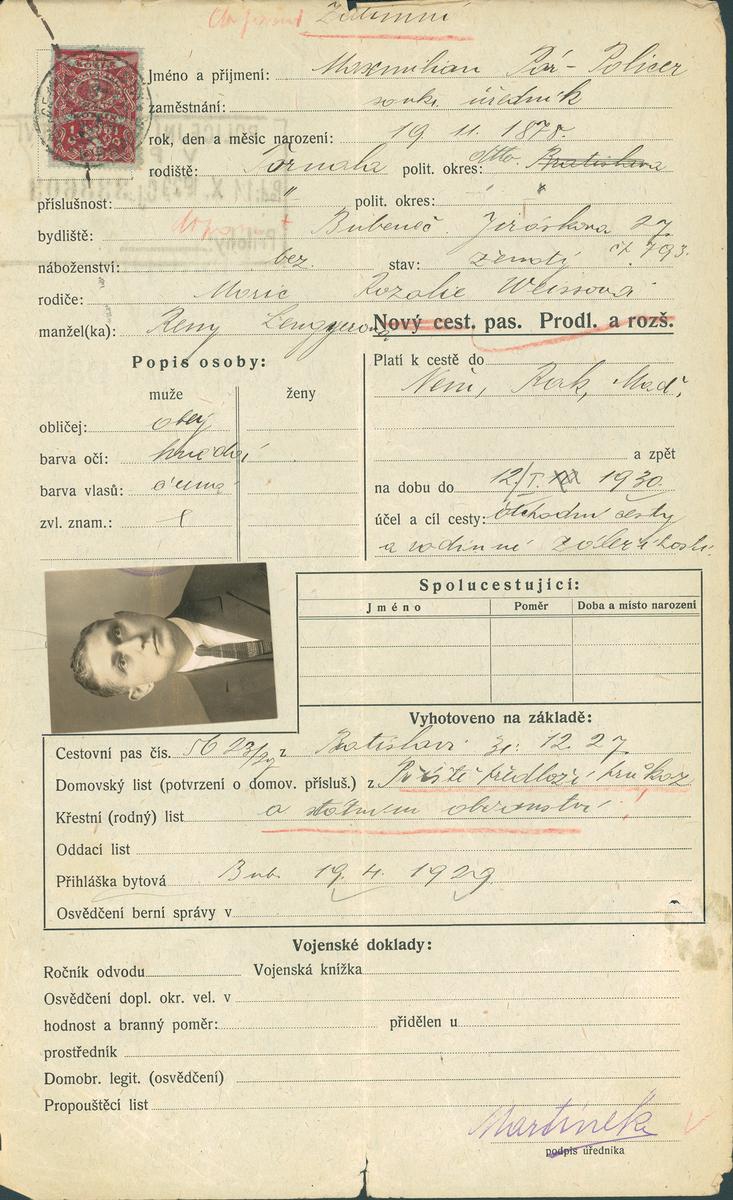 Zatímní
Jméno a příjmení: Maxmilian Pór-Policer
zaměstnání: soukr. úředník
rok, den a měsíc narození: 19 11. 1878.
rodiště: Tornala polit. okres: dtto Bratislava
příslušnost: " polit. okres: "
bydliště: Bubeneč Jiráskova 27.
čp 793.
náboženství: bez. stav: ženatý
rodiče: Moric Rozalie Weissová
manžel(ka): Reny Lengyerová
Nový cest. pas. Prodl. a rozš.
Popis osoby:
muže ženy
obličej: obly
barva očí: hnědá
barva vlasů: černé
zvl. znam.:
Platí k cestě do
Něm, Rak, Maď.
a zpět
na dobu do 12/I. 1930.
účel a cíl cesty: obchodní cesty
a rodinné záležitosti.
Spolucestující:
Jméno Poměr Doba a místo narození
Vyhotoveno na základě:
Cestovní pas čís. 5623/27 z Bratislavi 31. 12. 27.
Domovský list (potvrzení o domov. přísluš.) z Příště předloží průkaz
Křestní (rodný) list o státním občanství!
Oddací list
Přihláška bytová Bub. 19. 4. 1929
Osvědčení berní správy v
Vojenské doklady:
Ročník odvodu Vojenská knížka
Osvědčení dopl. okr. vel. v
hodnost a branný poměr: přidělen u
prostředník
Domobr. legit. (osvědčení)
Propouštěcí list
Martínek
podpis úředníka